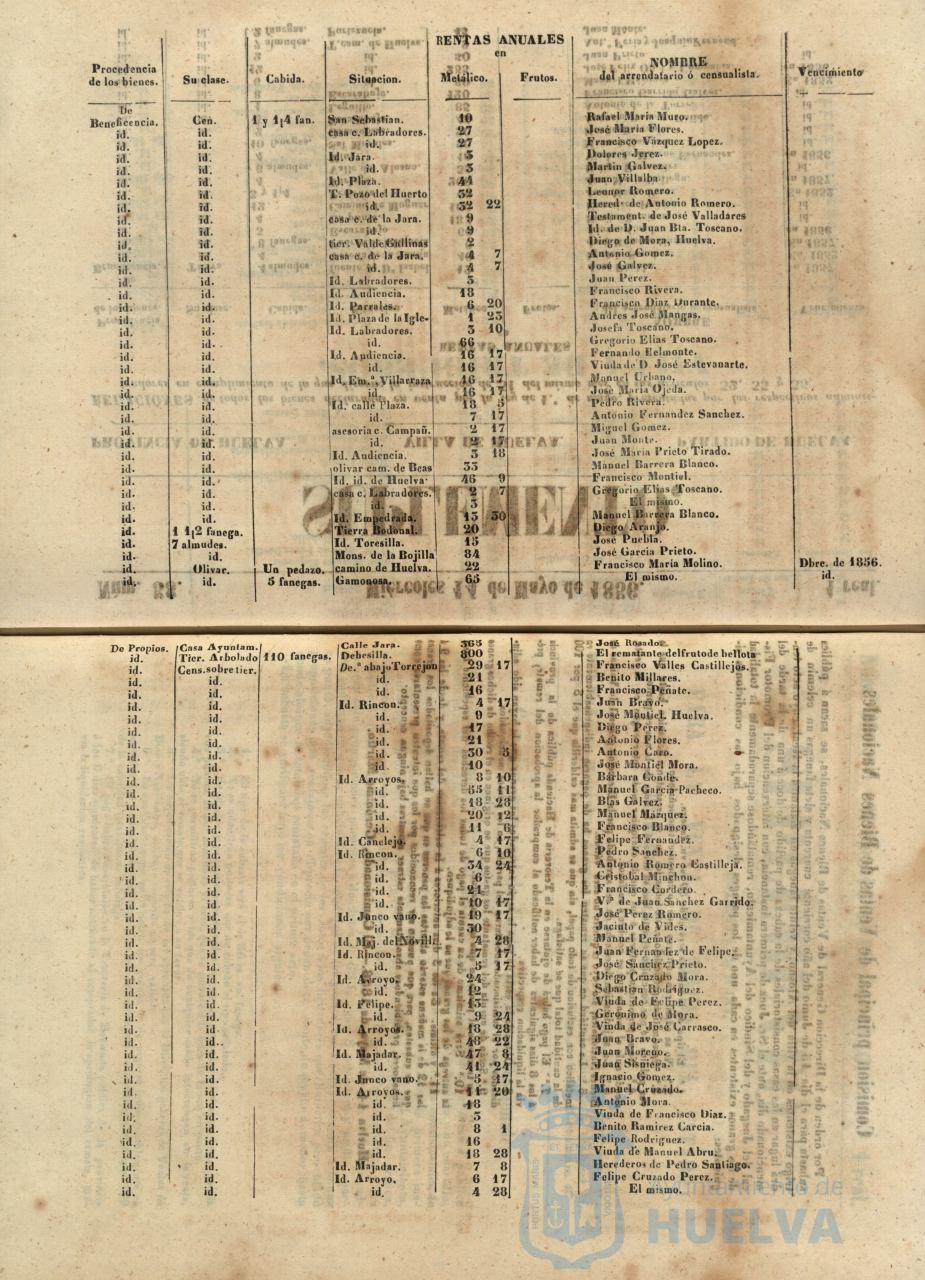 RENTAS ANUALES
en
Procedencia de los bienes. Su clase. Cabida. Situacion. Metálico. Frutos. NOMBRE del arrendatario ó censualista. Vencimiento
De
Beneficencia. Cen. 1 y 1¡4 fan. San Sebastian. 10 Rafael Maria Muro.
id. id. casa c. Labradores. 27 José Maria Flores.
id. id. id. 27 Francisco Vázquez Lopez.
id. id. Id. Jara. 3 Dolores Jerez.
id. id. id. 3 Martin Galvez.
id. id. Id. Plaza. 44 Juan Villalba
id. id. T. Pozo del Huerto 32 Leonor Romero.
id. id. id. 32 22 Hered.s de Antonio Romero.
id. id. casa c. de la Jara. 9 Testament. de José Valladares
id. id. id. 9 Id. de D. Juan Bta. Toscano.
id. id. tier. Valde Gallinas 2 Diego de Mora, Huelva.
id. id. casa c. de la Jara. 4 7 Antonio Gomez.
id. id. id. 4 7 José Galvez.
id. id. Id. Labradores. 3 Juan Perez.
id. id. Id. Audiencia. 18 Francisco Rivera.
id. id. Id. Parrales. 6 20 Francisco Diaz Durante.
id. id. Id. Plaza de la Igle- 1 23 Andres José Mangas.
id. id. Id. Labradores. 3 10 Josefa Toscano.
id. id. id. 66 Gregorio Elias Toscano.
id. id. Id. Audiencia. 16 17 Fernando Belmonte.
id. id. id. 16 17 Viuda de D. José Estevanarte.
id. id. Id. Em.ª. Villarraza 16 17 Manuel Urbano.
id. id. id. 16 17 José Maria Ojeda.
id. id. Id. calle Plaza. 18 5 Pedro Rivera.
id. id. id. 7 17 Antonio Fernandez Sanchez.
id. id. asesoria c. Campañ. 2 17 Miguel Gomez.
id. id. id. 2 17 Juan Monte.
id. id. Id. Audiencia. 3 18 José Maria Prieto Tirado.
id. id. olivar cam. de Beas 33 Manuel Barrera Blanco.
id. id. Id. id. de Huelva 46 9 Francisco Montiel.
id. id. casa c. Labradores. 2 7 Gregorio Elias Toscano.
id. id. id. 3 El mismo.
id. id. Id. Empedrada. 13 30 Manuel Barrera Blanco.
id. 1 1¡2 fanega. Tierra Bodonal. 20 Diego Aranjo.
id. 7 almudes. Id. Toresilla. 15 José Puebla.
id. id. Mons. de la Bojilla 84 José Garcia Prieto.
id. Olivar. Un pedazo. camino de Huelva. 22 Francisco Maria Molino. Dbre. de 1856.
id. id. 5 fanegas. Gamonosa. 65 El mismo. id.
De Propios. Casa Ayuntam. Calle Jara. 365 José Rosado.
id. Tier. Arbolado 110 fanegas. Dehesilla. 800 El rematante del fruto de bellota
id. Cens. sobre tier. De.ª abajo Torrejon 29 17 Francisco Valles Castillejos.
id. id. id. 21 Benito Millares.
id. id. id. 16 Francisco Peñate.
id. id. Id. Rincon. 4 17 Juan Bravo.
id. id. id. 9 José Montiel. Huelva.
id. id. id. 17 Diego Perez.
id. id. id. 21 Antonio Flores.
id. id. id. 30 5 Antonio Caro.
id. id. id. 10 José Montiel Mora.
id. id. Id. Arroyos. 8 10 Bárbara Conde.
id. id. id. 11 Manuel Garcia Pacheco.
id. id. id. 18 28 Blas Galvez.
id. id. id. 20 12 Manuel Márquez.
id. id. id. 11 6 Francisco Blanco.
id. id. Id. Canelejo. 4 17 Felipe Fernandez.
id. id. Id. Rincon. 6 10 Pedro Sanchez.
id. id. id. 34 24 Antonio Romero Castilleja.
id. id. id. 6 Cristobal Minchon.
id. id. id. 21 Francisco Cordero.
id. id. id. 10 17 V.ª de Juan Sanchez Garrido.
id. id. Id. Junco vano. 19 17 José Perez Romero.
id. id. id. 30 Jacinto de Vides.
id. id. Id. Maj. del Novill. 4 28 Manuel Peñate.
id. id. Id. Rincon. 7 17 Juan Fernandez de Felipe.
id. id. id. 5 17 José Sanchez Prieto.
id. id. Id. Arroyo. 24 Diego Cruzado Mora.
id. id. id. 12 Sebastian Rodriguez.
id. id. Id. Felipe. 15 Viuda de Felipe Perez.
id. id. id. 9 24 Gerónimo de Mora.
id. id. Id. Arroyos. 18 28 Viuda de José Carrasco.
id. id. id. 48 22 Juan Bravo.
id. id. Id. Majadar. 47 8 Juan Moreno.
id. id. id. 41 24 Juan Sisniega.
id. id. Id. Junco vano. 5 17 Ignacio Gomez.
id. id. Id. Arroyos. 11 20 Manuel Cruzado.
id. id. id. 18 Antonio Mora.
id. id. id. 3 Viuda de Francisco Diaz.
id. id. id. 8 1 Benito Ramirez Garcia.
id. id. id. 16 Felipe Rodriguez.
id. id. id. 18 28 Viuda de Manuel Abru.
id. id. Id. Majadar. 7 8 Herederos de Pedro Santiago.
id. id. Id. Arroyo. 6 17 Felipe Cruzado Perez.
id. id. id. 4 28 El mismo.
Ayuntamiento de
HUELVA